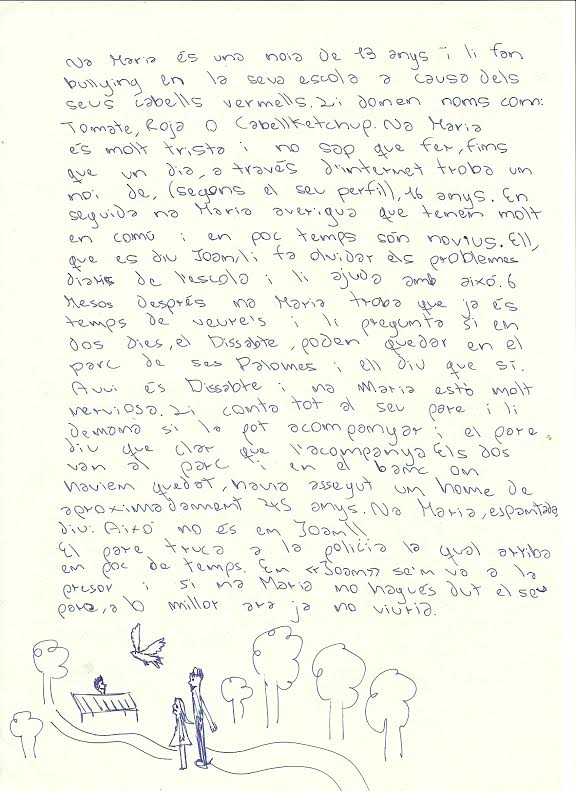 Na Maria és una noia de 13 anys i li fan
bullying en la seva escola a causa dels
seus cabells vermells. Li donen noms com:
Tomate, Roja o CabellKetchup. Na Maria
és molt trista i no sap que fer, fins
que un dia, a través d'internet troba un
noi de, (segons el seu perfil), 16 anys. En
seguida na Maria averigua que tenen molt
en comú i en poc temps són novius. Ell,
que es diu Joan, li fa olvidar els problemes
diaris de l'escola i li ajuda amb aixó. 6
Mesos després na Maria troba que ja és
temps de veureis i li pregunta si en
dos dies, el Dissabte, poden quedar en el
parc de ses Palomes i ell diu que sí.
Avui és Dissabte i na Maria està molt
nerviosa. Li conta tot al seu pare i li
demana si la pot acompanyar i el pare
diu que clar que l'acompanya. Els dos
van al parc i en el banc on
haviem quedat, havia assegut un home de
aproximadament 45 anys. Na Maria, espantada,
diu: Aixó no és em Joan!!
El pare truca a la policia la qual arriba
em poc de temps. Em «Joan» se'm va a la
presor i si na Maria no hagués dut el seu
pare, a lo millor ara ja no viuria.